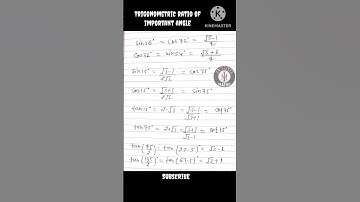 TRIGONOMETRIC RATIO OF
IMPORTANT ANGLE
KINEMASTER
sin 18° = cos 72° = √5-1/4
cos 36° = sin 54° = √5+1/4
sin 15° = √3-1/2√2 = cos 75°
cos 15° = √3+1/2√2 = sin 75°
tan 15° = 2-√3 = √3-1/√3+1 = cot 75°
tan 75° = 2+√3 = √3+1/√3-1 = cot 15°
tan(45/2)° = tan(22.5)° = √2-1
tan(135/2)° = tan(67.5)° = √2+1
SUBSCRIBE